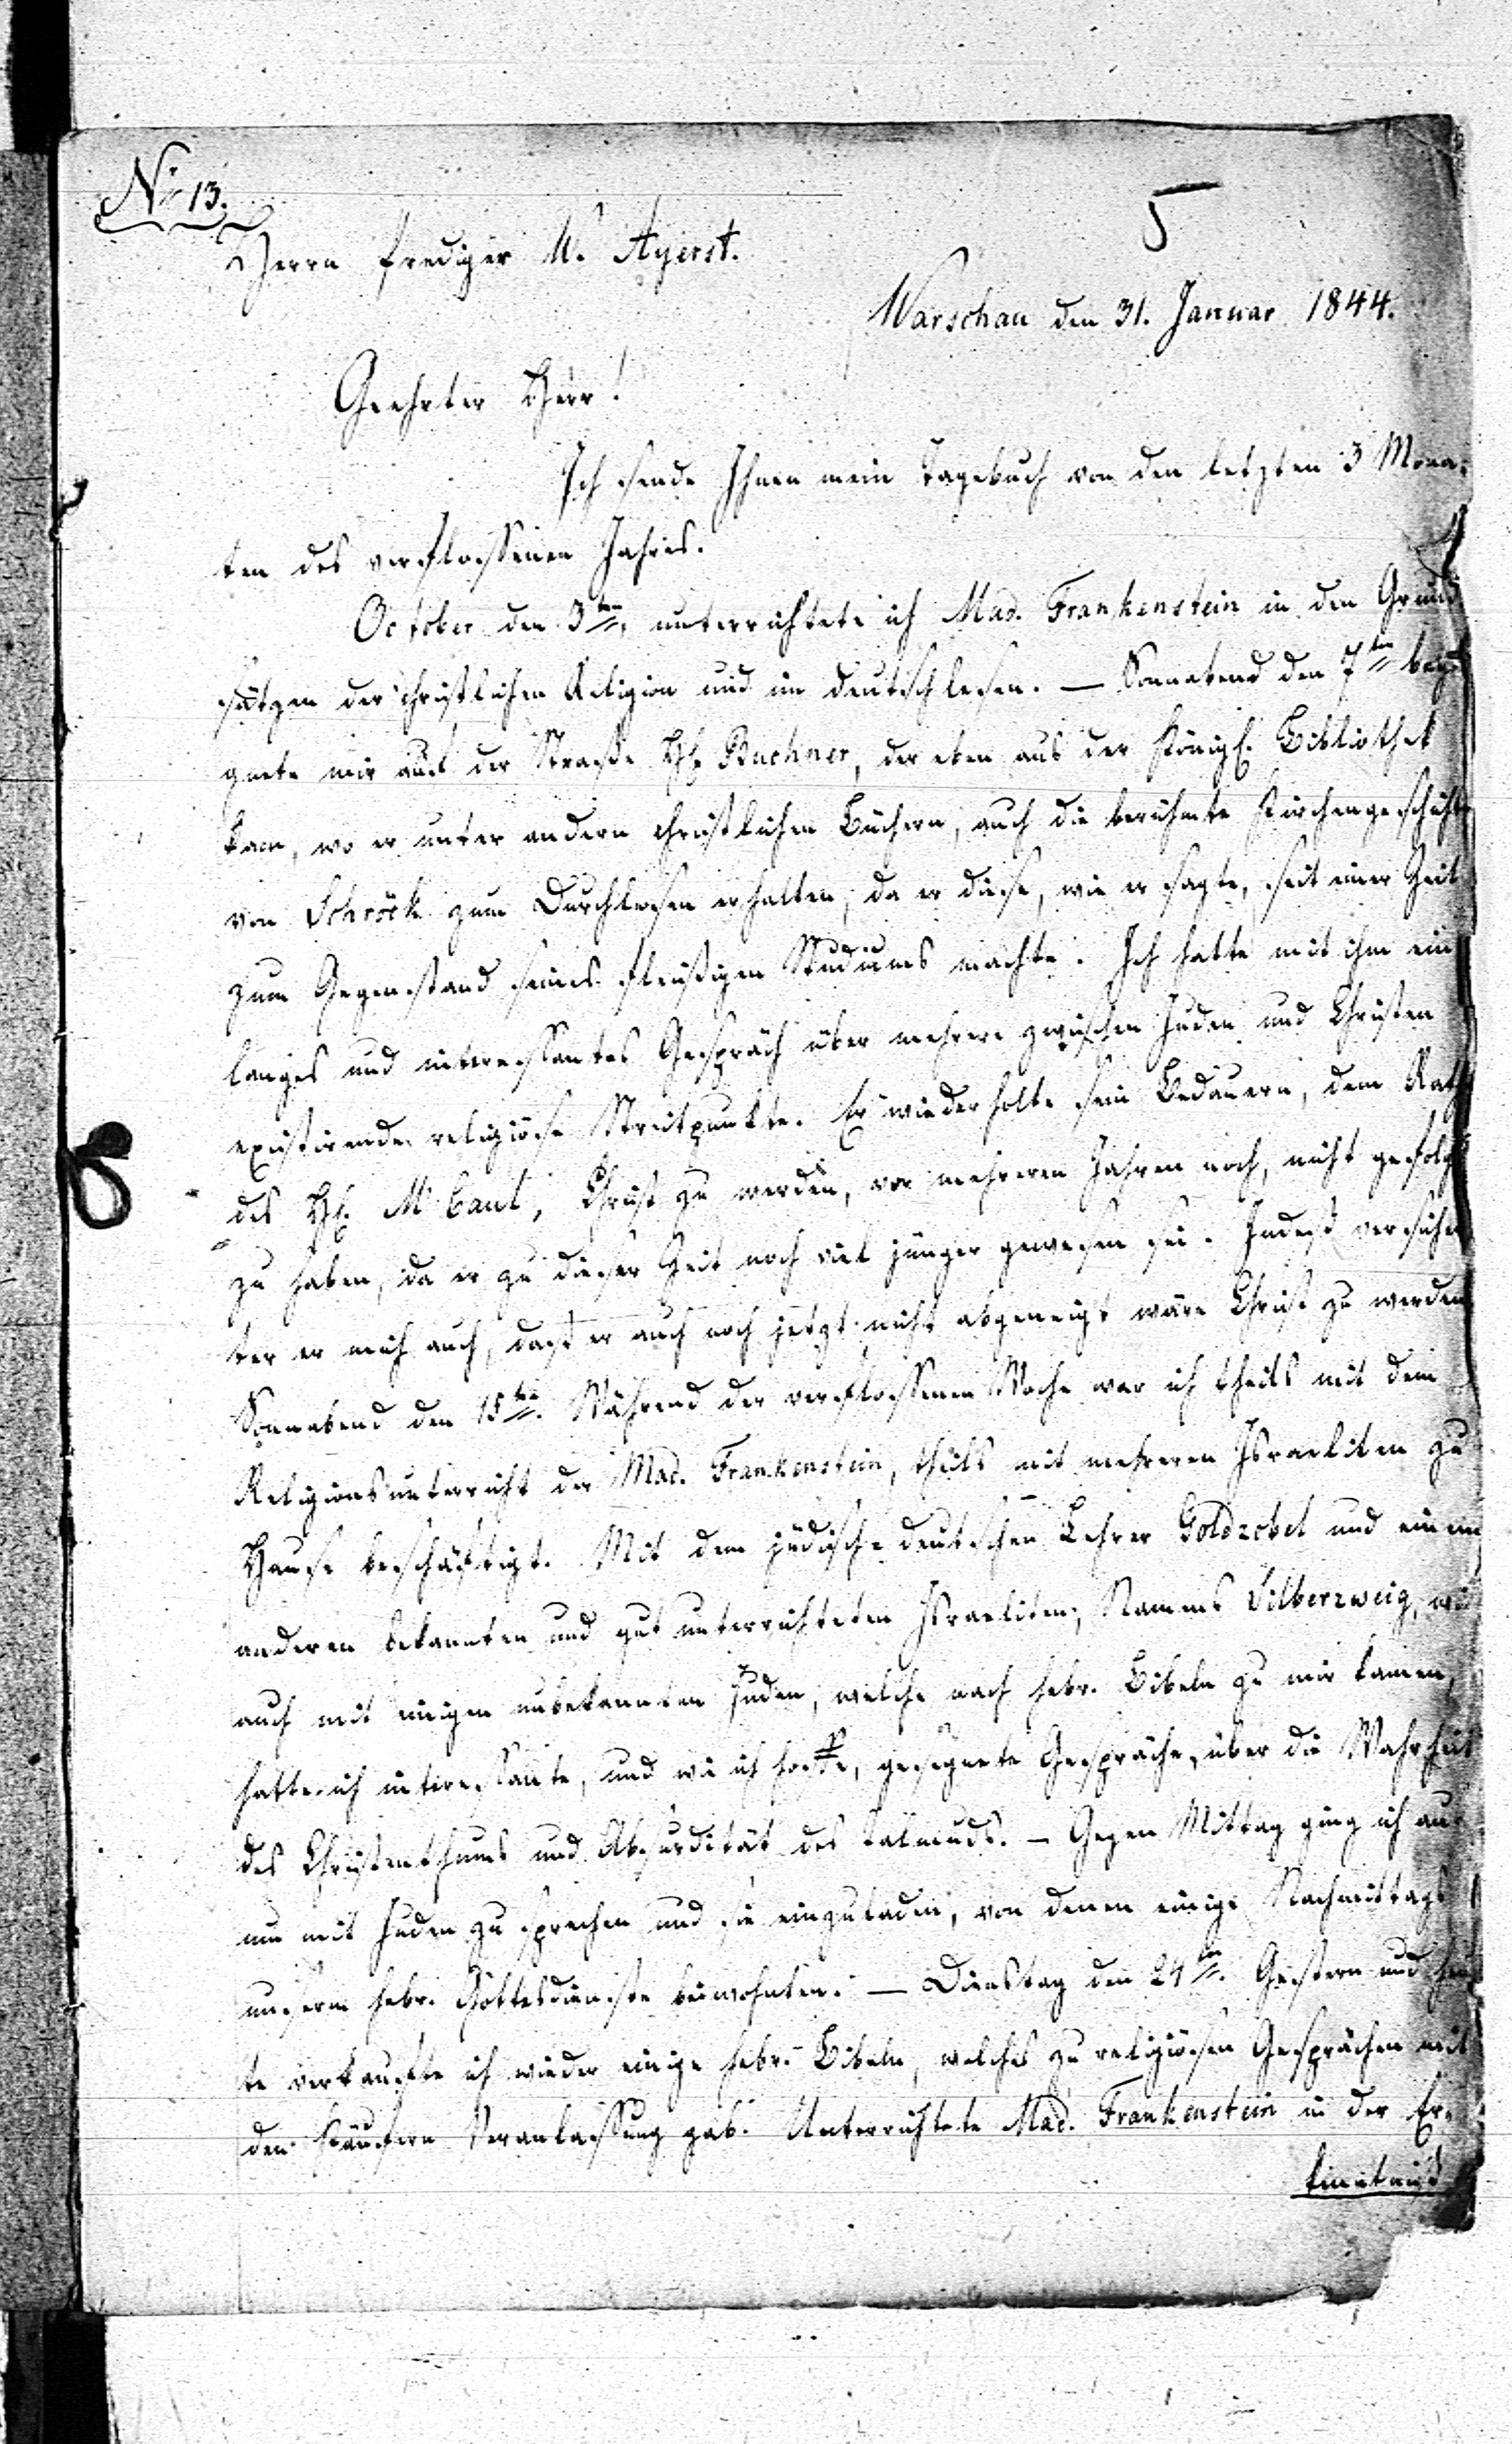 No 13.
5
Herrn Prediger W. Ayerst.
Warschau den 31. Januar 1844.
Geehrter Herr!
Ich sende Ihnen mein Tagebuch von den letzten 3 Mona-
ten des verflossenen Jahres.
October den 3ten, unterrichtete ich Mad. Frankenstein in den Grund
sätzen der christlichen Religion und im deutschlesen. — Sonnabend den 7ten bege
gnete mir auf der Straße H. Buchner, der eben aus der Königl. Bibliothek
kam, wo er unter andern christlichen Büchern, auch die berühmte Kirchengeschichte
von Schröck zum Durchlesen erhalten, da er diese, wie er sagte, seit einer Zeit
zum Gegenstand seines fleißigen Studiums machte. Ich hatte mit ihm ein
langes und interessantes Gespräch über mehrere zwischen Juden und Christen
existirende religiöse Streitpunkte. Er wiederholte sein Bedauern, dem Rath
des H. M'Caul, Christ zu werden, vor mehreren Jahren noch, nicht gefolgt
zu haben, da er zu dieser Zeit noch viel jünger gewesen sei. Indeß versicher
ter er mich auch, daß er auch noch jetzt nicht abgeneigt wäre Christ zu werden
Sonnabend den 15te. Während der verflossenen Woche war ich theils mit dem
Religionsunterricht der Mad. Frankenstein, theils mit mehreren Israeliten zu
Hause beschäftigt. Mit dem jüdisch-deutschen Lehrer Goldzobel und einem
anderen bekannten und gut unterrichteten Israeliten, Namens Silberzweig, wie
auch mit einigen unbekannten Juden, welche nach hebr. Bibeln zu mir kamen,
hatte ich interessante, und wie ich hoffe, gesegnete Gespräche, über die Wahrheit
des Christenthums und Absurdität des Talmuds. — Gegen Mittag ging ich aus
um mit Juden zu sprechen und sie einzuladen, von denen einige Nachmittags
unserm hebr. Gottesdienste beiwohnten. — Dienstag den 24ten. Gestern und heu
te verkaufte ich wieder einige hebr. Bibeln, welches zu religiösen Gesprächen mit
den Käufern Veranlassung gab. Unterrichtete Mad. Frankenstein in der Er-
kenntniß